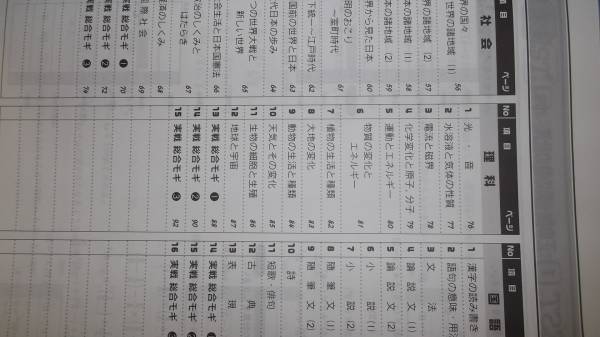 社会
項目 ページ
界の国々
世界の諸地域 (1) 56
界の諸地域 (2) 57
本の諸地域 (1) 58
本の諸地域 (2) 59
界から見た日本 60
明のおこり
～室町時代 61
下統一～江戸時代 62
国前の世界と日本 63
代日本の歩み 64
つの世界大戦と
新しい世界 65
会生活と日本国憲法 66
治のしくみと
はたらき 67
のしくみ 68
際社会 69
総合モギ ❶ 70
総合モギ ❷ 72
総合モギ ❸ 74
理科
No 項目 ページ
1 光・音 76
2 水溶液と気体の性質 77
3 電流と磁界 78
4 化学変化と原子、分子 79
5 運動とエネルギー 80
6 物質の変化と
エネルギー 81
7 植物の生活と種類 82
8 大地の変化 83
9 動物の生活と種類 84
10 天気とその変化 85
11 生物の細胞と生殖 86
12 地球と宇宙 87
13 実戦 総合モギ ❶ 88
14 実戦 総合モギ ❷ 90
15 実戦 総合モギ ❸ 92
国語
No 項目
1 漢字の読み書き
2 語句の意味・用法
3 文法
4 論説文 (1)
5 論説文 (2)
6 小説 (1)
7 小説 (2)
8 随筆文 (1)
9 随筆文 (2)
10 詩
11 短歌・俳句
12 古典
13 表現
14 実戦 総合モギ
15 実戦 総合モギ
16 実戦 総合モギ